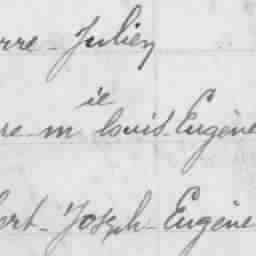 rre - Julien
re m ie Louis Eugène
bert - Joseph - Eugène